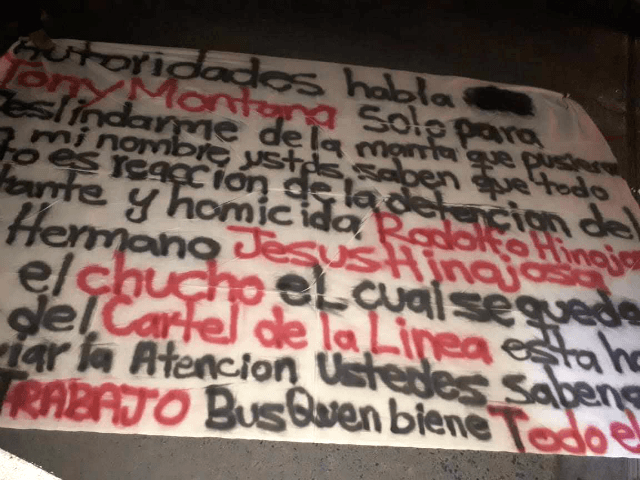 Autoridades habla
Tony Montana Solo para
Deslindarme de la manta que pusieron
a mi nombre, ustds. saben que todo
to es reaccion de la detencion del
tante y homicida Rodolfo Hinojo
Hermano Jesus Hinojosa
el chucho el cual se quedo
del Cartel de la Linea esta ha
iar la Atencion Ustedes Saben
TRABAJO BusQuen biene Todo el